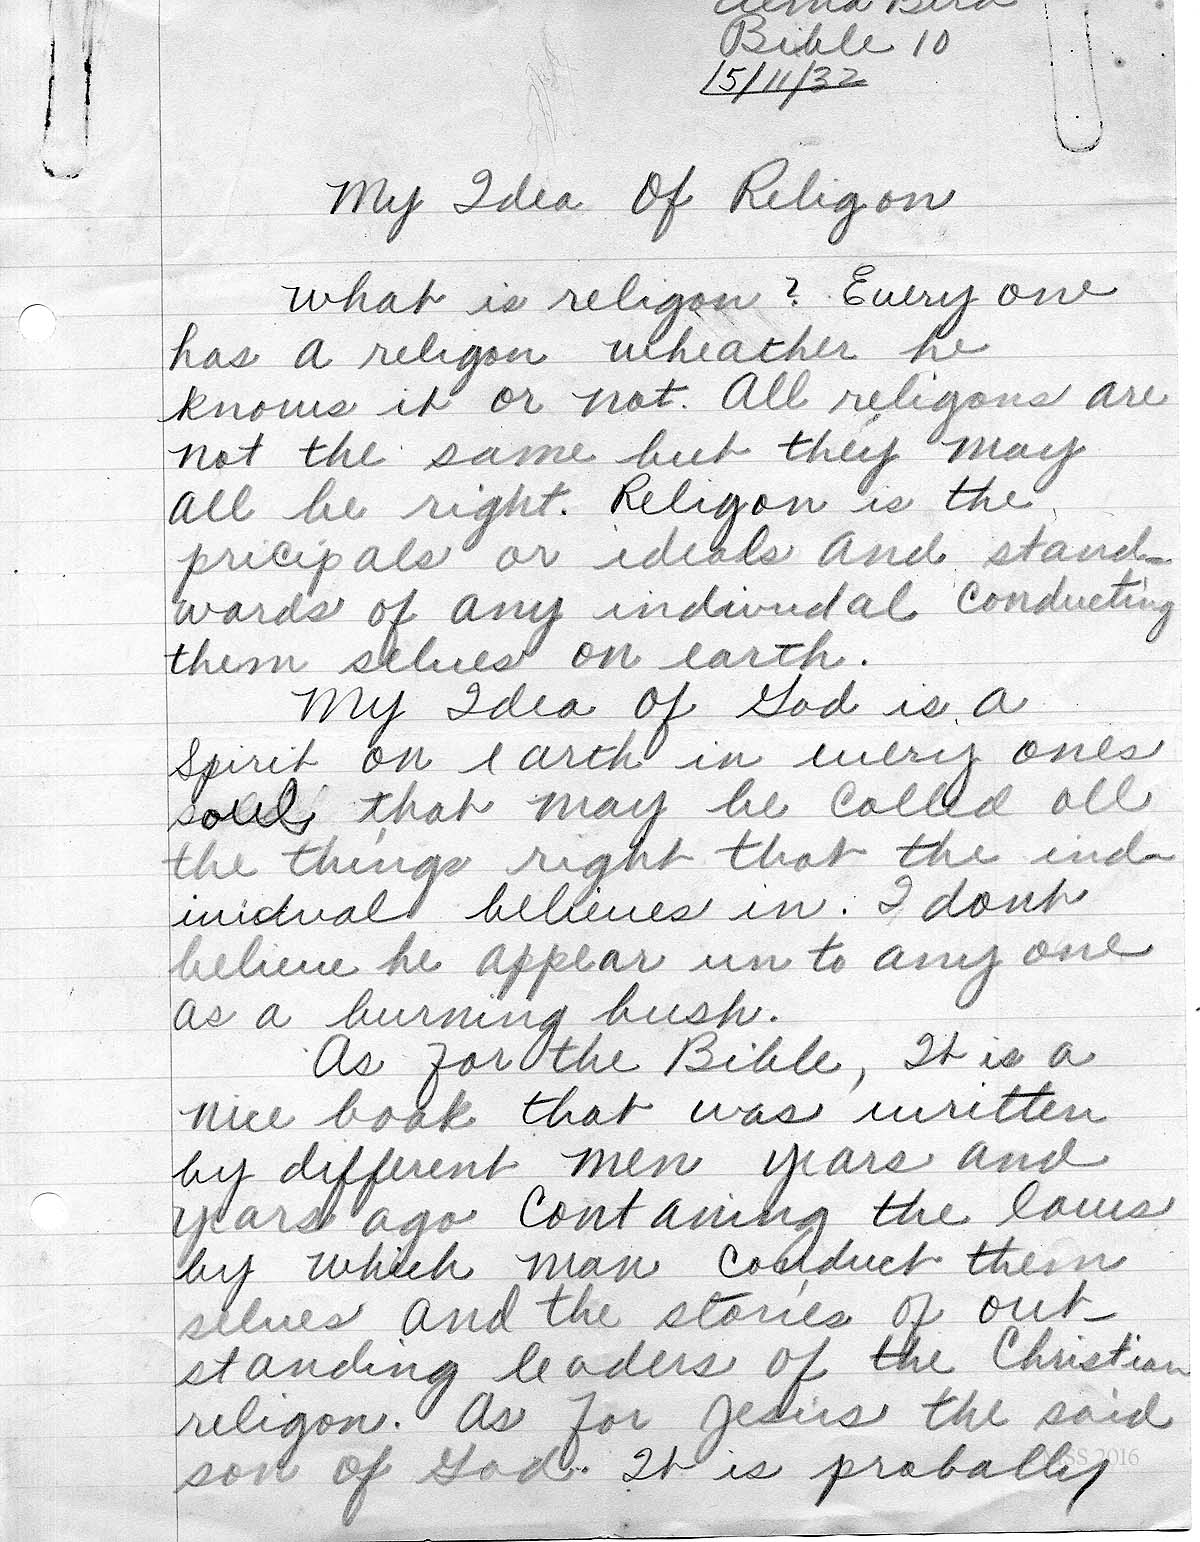 Bible 10
15/11/32
My Idea Of Religon
What is religon? Every one
has a religon wheather he
knows it or not. All religons are
not the same but they may
all be right. Religon is the
pricipals or ideals and stand-
wards of any indivudal conducting
them selves on earth.
My Idea of God is a
Spirit on earth in every ones
soul that may be called all
the things right that the ind-
ividual believes in. I dont
believe he appear un to any one
as a burning bush.
As for the Bible, It is a
nice book that was written
by different men years and
years ago containing the laws
by which man conduct them
selves and the stories of out-
standing leaders of the Christian
religon. As for Jesus the said
son of God. It is probally
2016